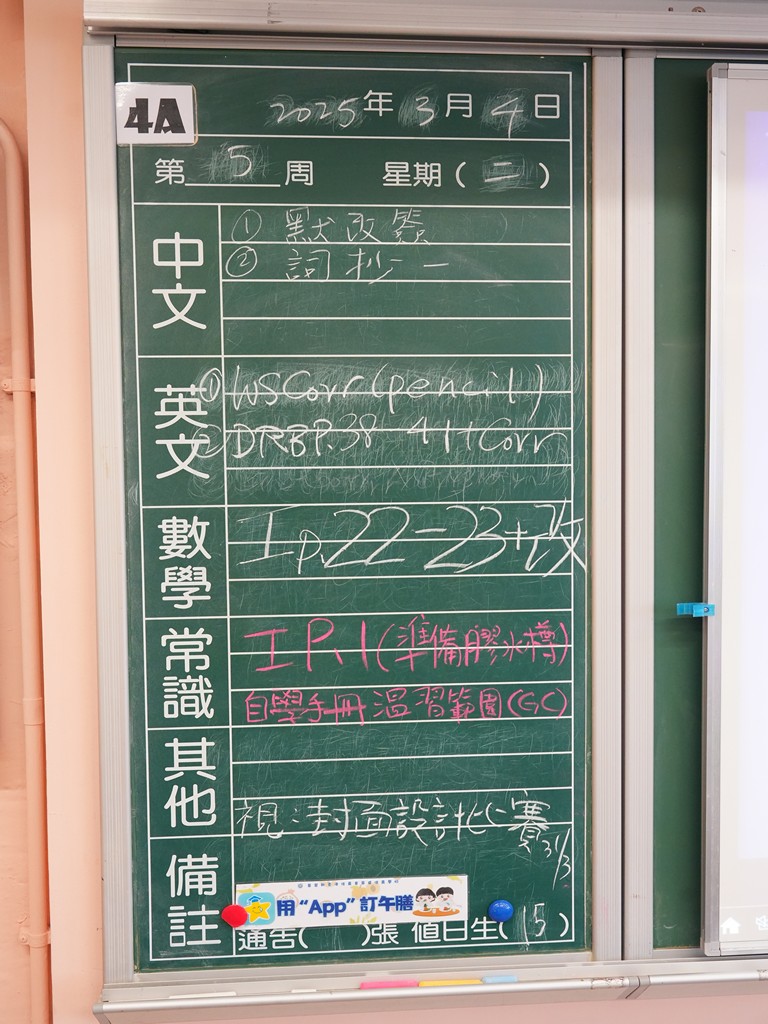 4A
2025年3月4日
第5周 星期(二)
中文
① 默改簽
② 詞抄一
英文
① WSCorr(pencil)
② DRBP.38-41+Corr
數學
工p.22-23+改
常識
工P.1(準備膠水樽)
自學手冊 溫習範圍(GC)
其他
視:封面設計比賽 31/3
備註
用“App”訂午膳
通告( )張 值日生(15)